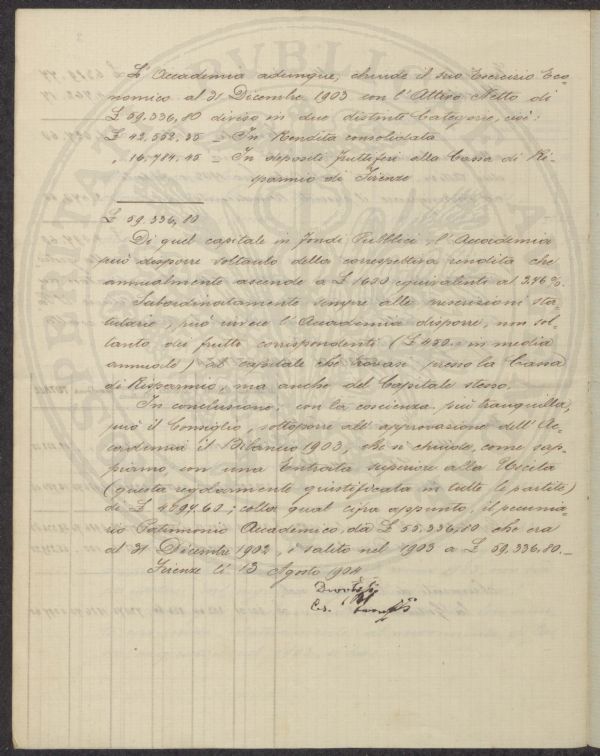 L'Accademia adunque, chiude il suo Esercizio Eco-
nomico al 31 Dicembre 1903 con l'Attivo Netto di
£ 59.336,80 diviso in due distinte Categorie, cioè:
£ 42,552.35 = In Rendita consolidata
" 16,784.45 = In depositi fruttiferi alla Cassa di Ri-
sparmio di Firenze
£ 59.336,80
Di quel capitale in fondi Pubblici, l'Accademia
può disporre soltanto della correspettiva rendita che
annualmente ascende a £ 1600 equivalenti al 3.76%.
Subordinatamente sempre alle prescrizioni sta-
tutarie, può invece l'Accademia disporre, non sol-
tanto dei frutti corrispondenti (£ 450. in media
annuale) al capitale che trovasi presso la Cassa
di Risparmio, ma anche del Capitale stesso.
In conclusione, con la coscienza più tranquilla,
può il Consiglio, sottoporre all'approvazione dell'Ac-
cademia il Bilancio 1903, che si chiude, come sap-
piamo, con una Entrata superiore alla Uscita
(questa regolarmente giustificata in tutte le partite)
di £ 4094.60; colla qual cifra appunto, il pecunia-
rio Patrimonio Accademico, da £ 55.336,80 che era
al 31 Dicembre 1902, è salito nel 1903 a £ 59.336,80.-
Firenze lì 13 Agosto 1904